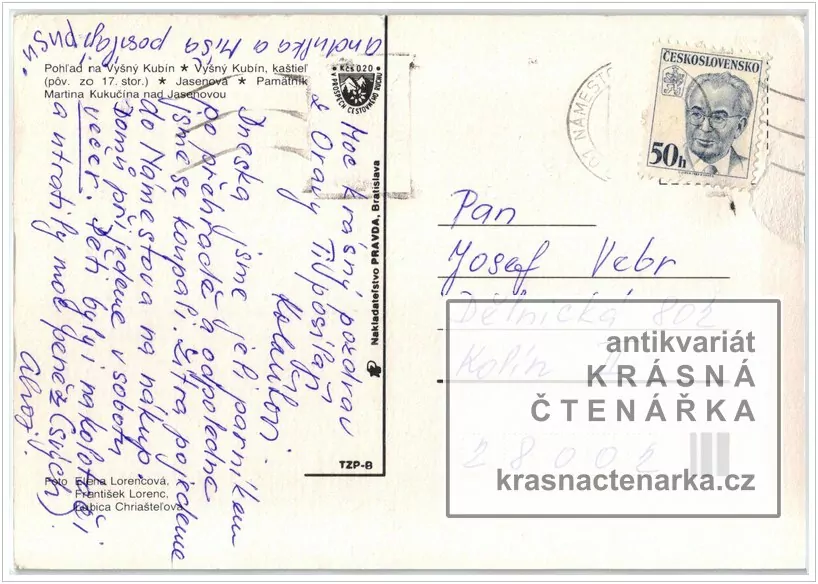 Pohľad na Vyšný Kubín ★ Vyšný Kubín, kaštieľ
(pôv. zo 17. stor.) ★ Jasenová ★ Pamätník
Martina Kukučína nad Jasenovou
Kčs 0·20
V PROSPECH CESTOVNÉHO RUCHU
Moc krásný pozdrav
z Oravy Ti posílají
Dneska jsme jeli parníkem
po přehradě a odpoledne
jsme se koupali. Zítra pojedeme
do Námestova na nákup.
Domů přijedeme v sobotu
večer. Děti byly i na kolotoči
a utratily moc peněz (svých).
Ahoj.
Andulka a Míša posílají pusu.
Nakladateľstvo PRAVDA, Bratislava
TZP-B
Foto Elena Lorencová,
František Lorenc,
Ľubica Chriašteľová
NÁMESTO
ČESKOSLOVENSKO
50h
Pan
Josef Vebr
Dělnická 802
Kolín
28002
antikvariát
KRÁSNÁ
ČTENÁŘKA
krasnactenarka.cz